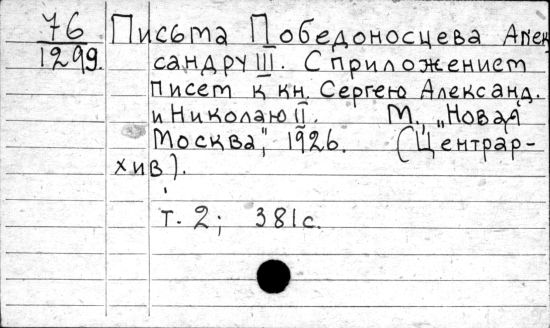 76 Письма Победоносцева Алек
1299. сандру III. С приложением
писем к кн. Сергею Александ.
и Николаю II. М., „Новая
Москва", 1926. (Центрар-
хив).
т. 2; 381с.